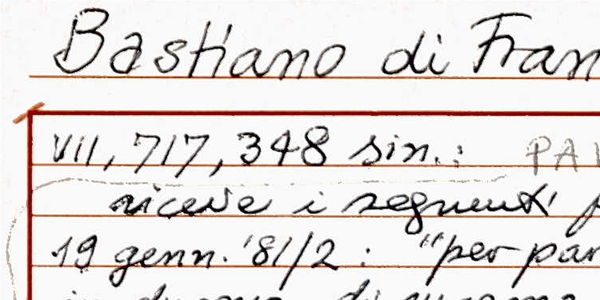 Bastiano di Fran
VII, 717, 348 sin.: PA
riceve i seguenti
19 genn. '81/2: "per par
di